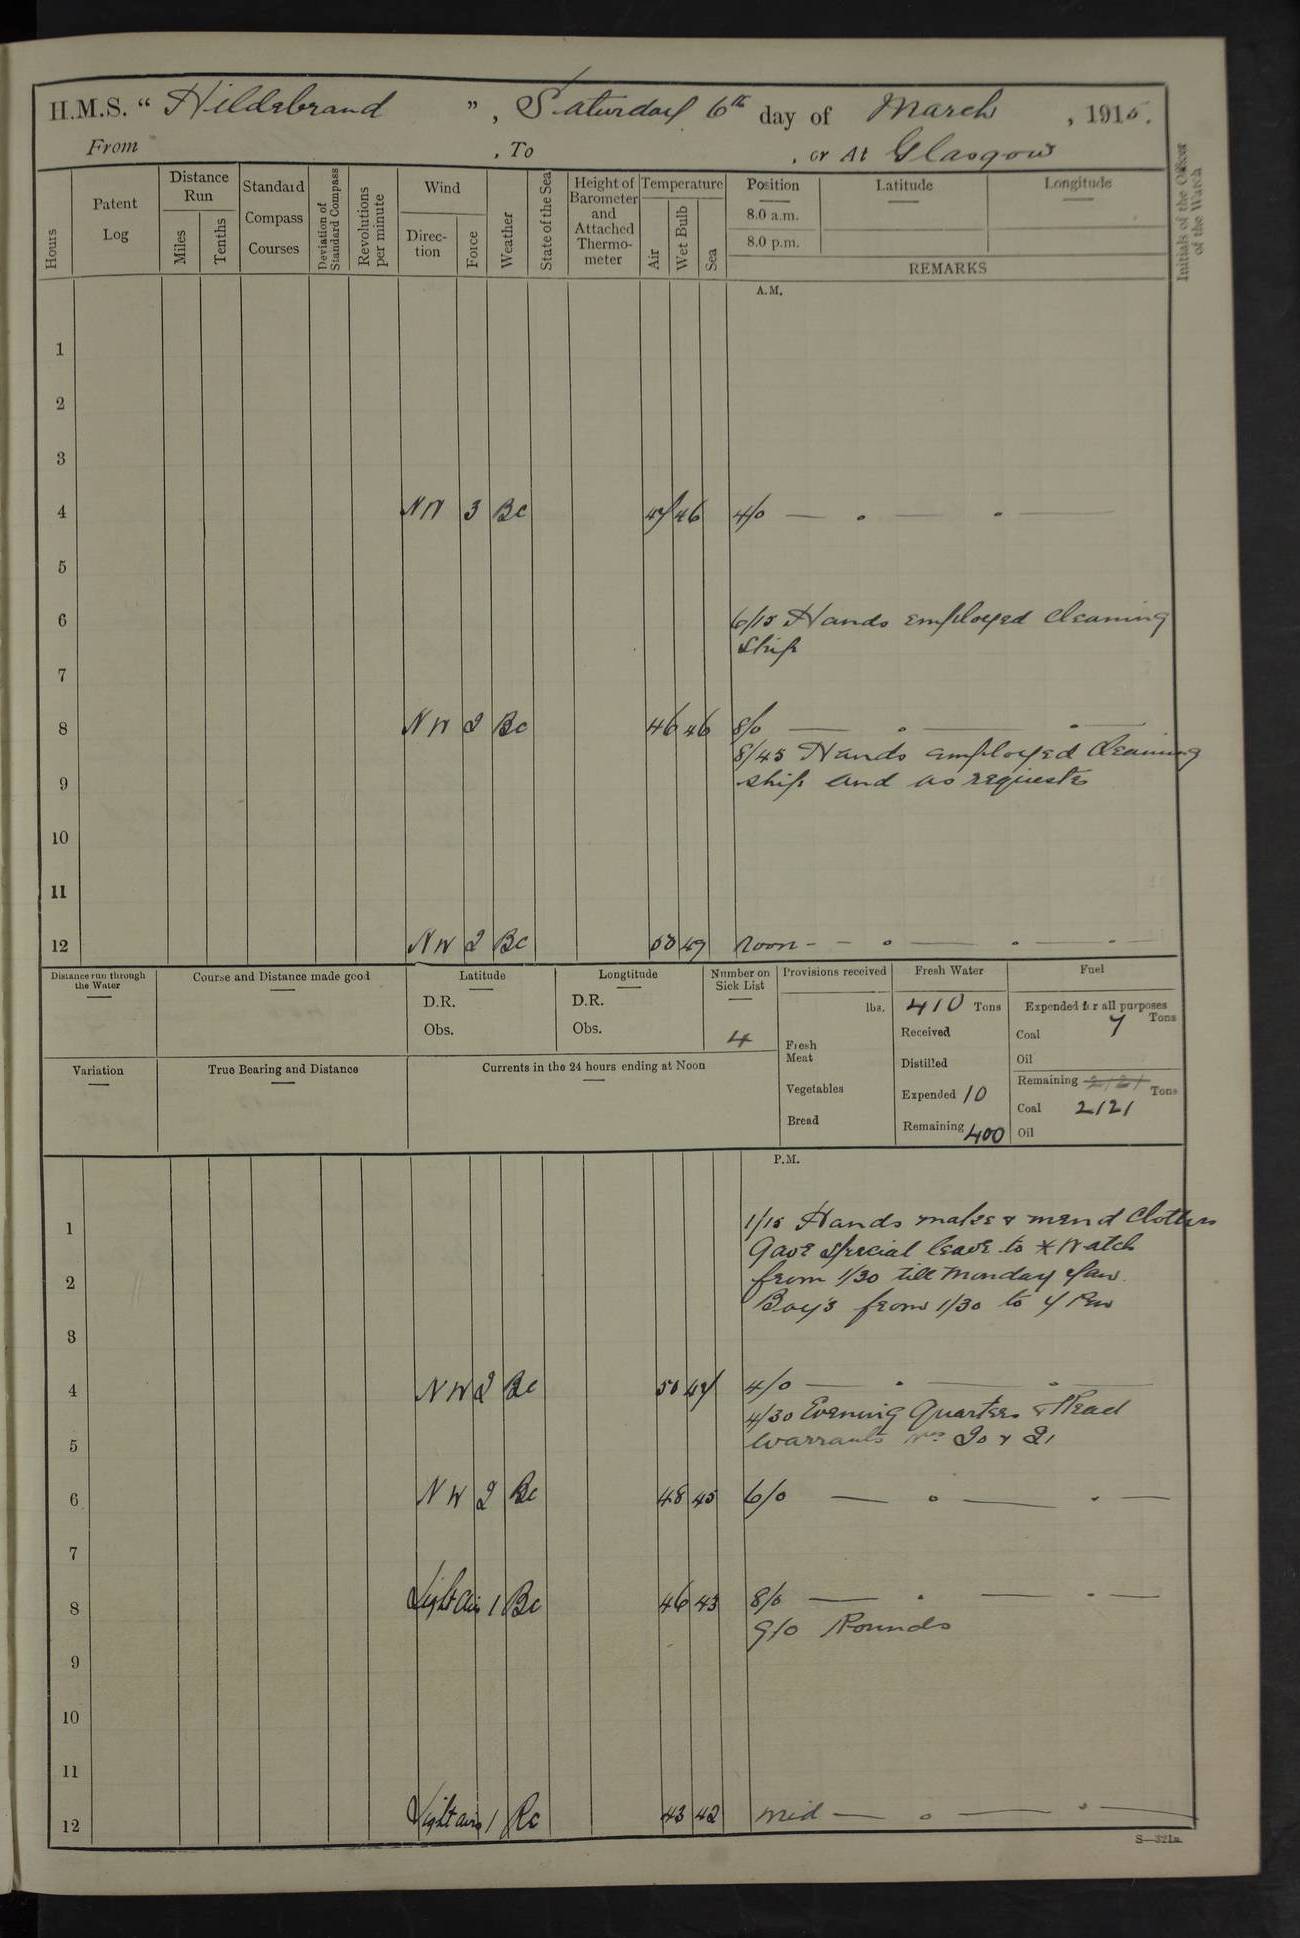 H.M.S. “ Hildebrand ”, Saturday 6th day of March, 1915.
From , To , or At Glasgow
Hours
Patent Log
Distance Run
Miles
Tenths
Standard Compass Courses
Deviation of Standard Compass
Revolutions per minute
Wind
Direction
Force
Weather
State of the Sea
Height of Barometer and Attached Thermometer
Temperature
Air
Wet Bulb
Sea
Position
8.0 a.m.
8.0 p.m.
Latitude
Longitude
REMARKS
Initials of the Officer of the Watch
A.M.
1
2
3
4 NW 3 Bc 47 46 4/0 — . — . —
5
6 6/15 Hands employed cleaning
ship
7
8 NW 2 Bc 46 46 8/0 — . — . —
8/45 Hands employed cleaning
9 ship and as requisite
10
11
12 NW 2 Bc 50 49 Noon - - . — . — . —
Distance run through the Water
Course and Distance made good
Latitude
D.R.
Obs.
Longtitude
D.R.
Obs.
Number on Sick List
4
Provisions received
lbs.
Fresh Meat
Vegetables
Bread
Fresh Water
410 Tons
Received
Distilled
Expended 10
Remaining 400
Fuel
Expended for all purposes
Tons
Coal 7
Oil
Remaining 2121
Tons
Coal 2121
Oil
Variation
True Bearing and Distance
Currents in the 24 hours ending at Noon
P.M.
1 1/15 Hands make & mend Clothes
Gave special leave to * Watch
2 from 1/30 till Monday 7am.
Boy's from 1/30 to 7 Pm
3
4 NW 2 Bc 50 47 4/0 — . — . —
4/30 Evening Quarters & Read
5 Warrants Nos 20 & 21
6 NW 2 Bc 48 45 6/0 — . — . —
7
8 Light Airs 1 Bc 46 43 8/0 — . — . —
9/0 Rounds
9
10
11
12 Light airs 1 Bc 43 42 mid — . — . —
S—321a.